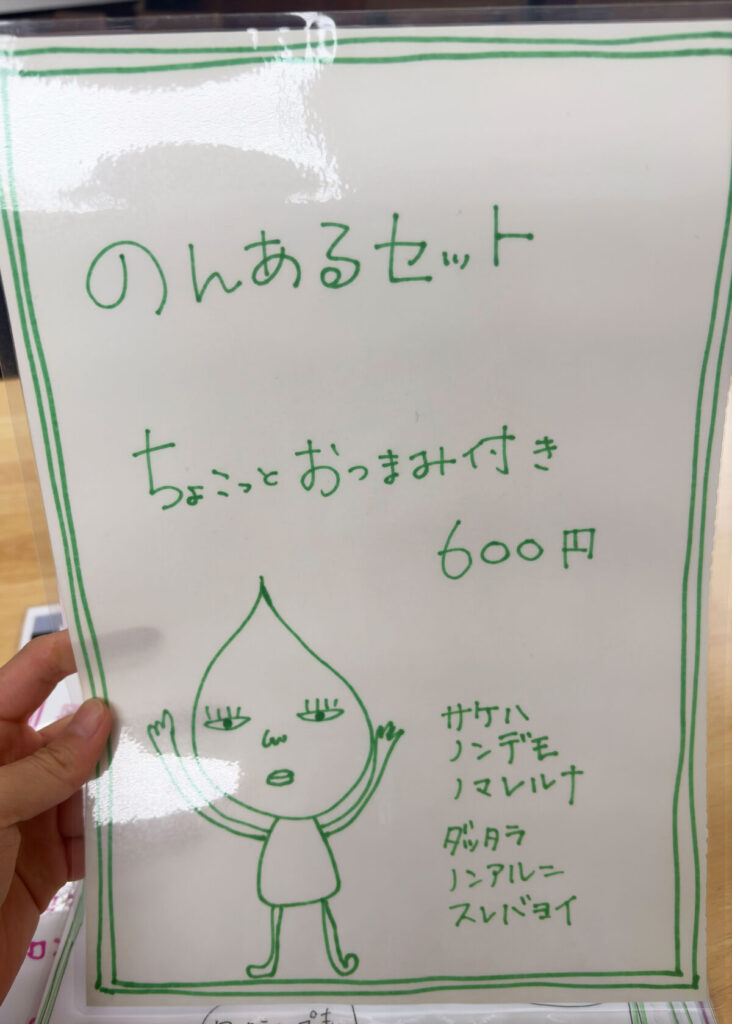 のんあるセット
ちょこっとおつまみ付き
600円
サケハ
ノンデモ
ノマレルナ
ダッタラ
ノンアルニ
スレバヨイ